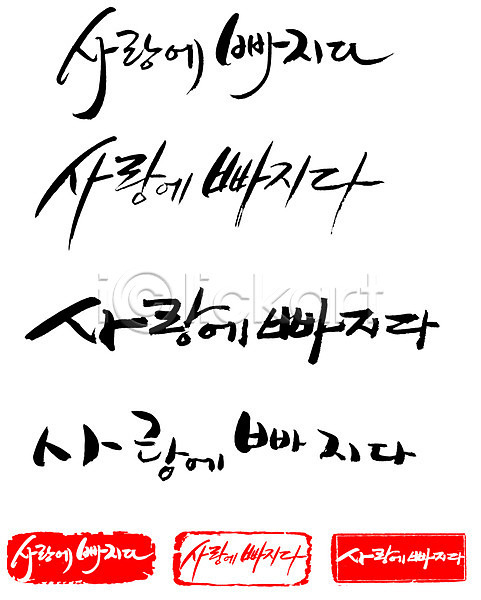 사랑에 빠지다
사랑에 빠지다
iclickart
사랑에 빠지다
사랑에 빠지다
사랑에 빠지다 사랑에 빠지다 사랑에 빠지다